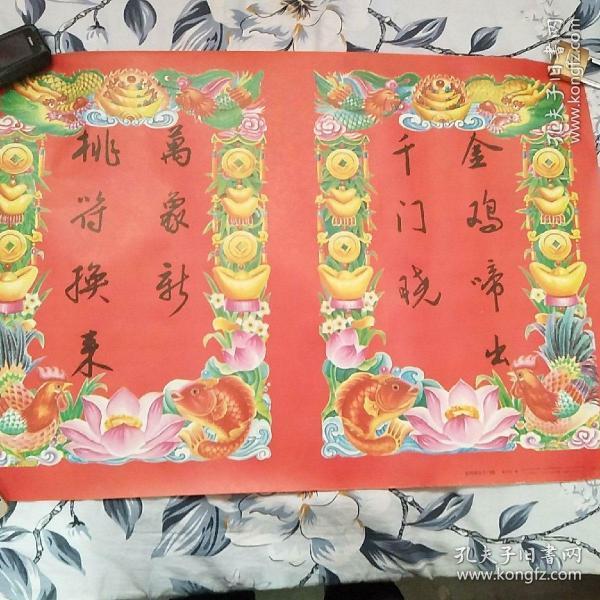 金鸡啼出
千门晓
桃符换来
萬象新
孔夫子旧书网
孔夫子旧书网
www.kongfz.com